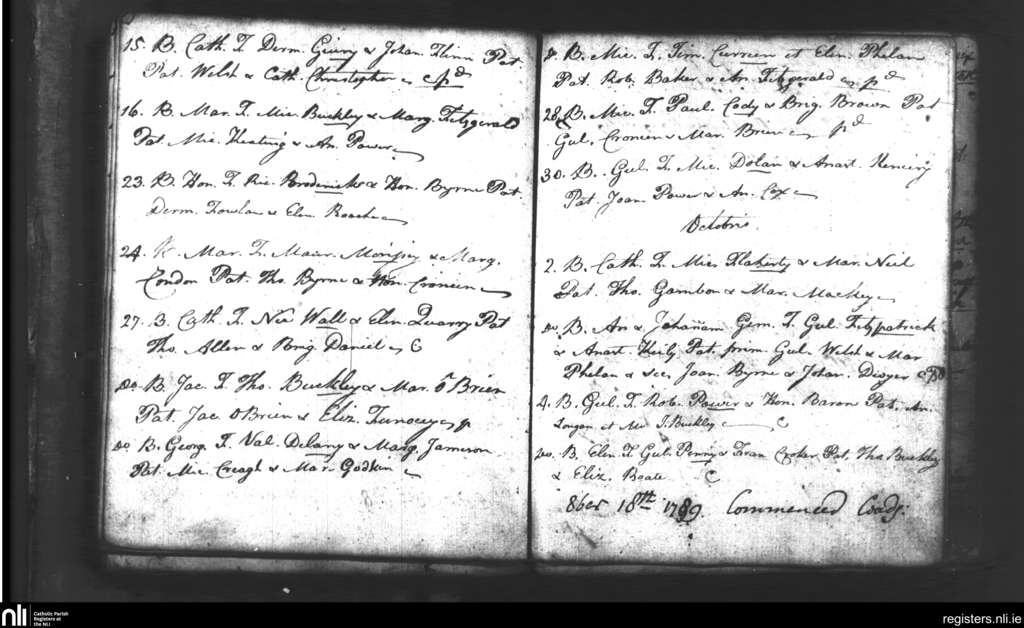 15. B. Cath. F. Derm. & Johan. Flinn Pat.
Pat. Welsh & Cath. Christopher pd
16. B. Mar. F. Mic. Buckley & Marg. Fitzgerald
Pat. Mic. Keating & An. Power
23. B. Hon. F. Ric. Broderick & Hon. Byrne Pat.
Derm. & Elen. Roach
24. Mar. F. & Marg.
Condon Pat. Tho. Byrne & Hon. Croneen
27. B. Cath. F. Nic Wall & Elen. Quarry Pat
Tho. Allen & Brig. Daniel C
do. B. Jac. F. Tho. Buckley & Mar. O Brien
Pat. Jac O Brien & Eliz. p
do B. Georg. F. Val. Delany & Marg. Jameson
Pat. Mic. Creagh & Mar. Godkin
8. B. Mic. F. Tim. Curreen et Elen. Phelan
Pat. Rob. Baker & An. Fitzgerald pd
28. B. Mic. F. Paul. Cody & Brig. Brown Pat
Gul. Croneen & Mar. Brien pd
30. B. Gul. F. Mic. Dolan & Anast.
Pat. Joan. Power & An. Cox
Octobris
2. B. Cath. F. Mic. Flaherty & Mar. Neil
Pat. Tho. Gambon & Mar. Mackey
do B. An & Johanam Gem. F. Gul. Fitzpatrick
& Anast. Pat. prim. Gul. Welsh & Mar
Phelan & sec. Joan. Byrne & Johan. Dwyer
4. B. Gul. F. Rob. Power & Hon. Baron Pat. An.
et Me J. Buckley C
do. B. Elen. F. Gul. Penny & Fran Croker Pat. Tho Buckley
& Eliz. C
8ber 18th 1789. Commenced Coadj.
nli
Catholic Parish
Registers at
the NLI
registers.nli.ie